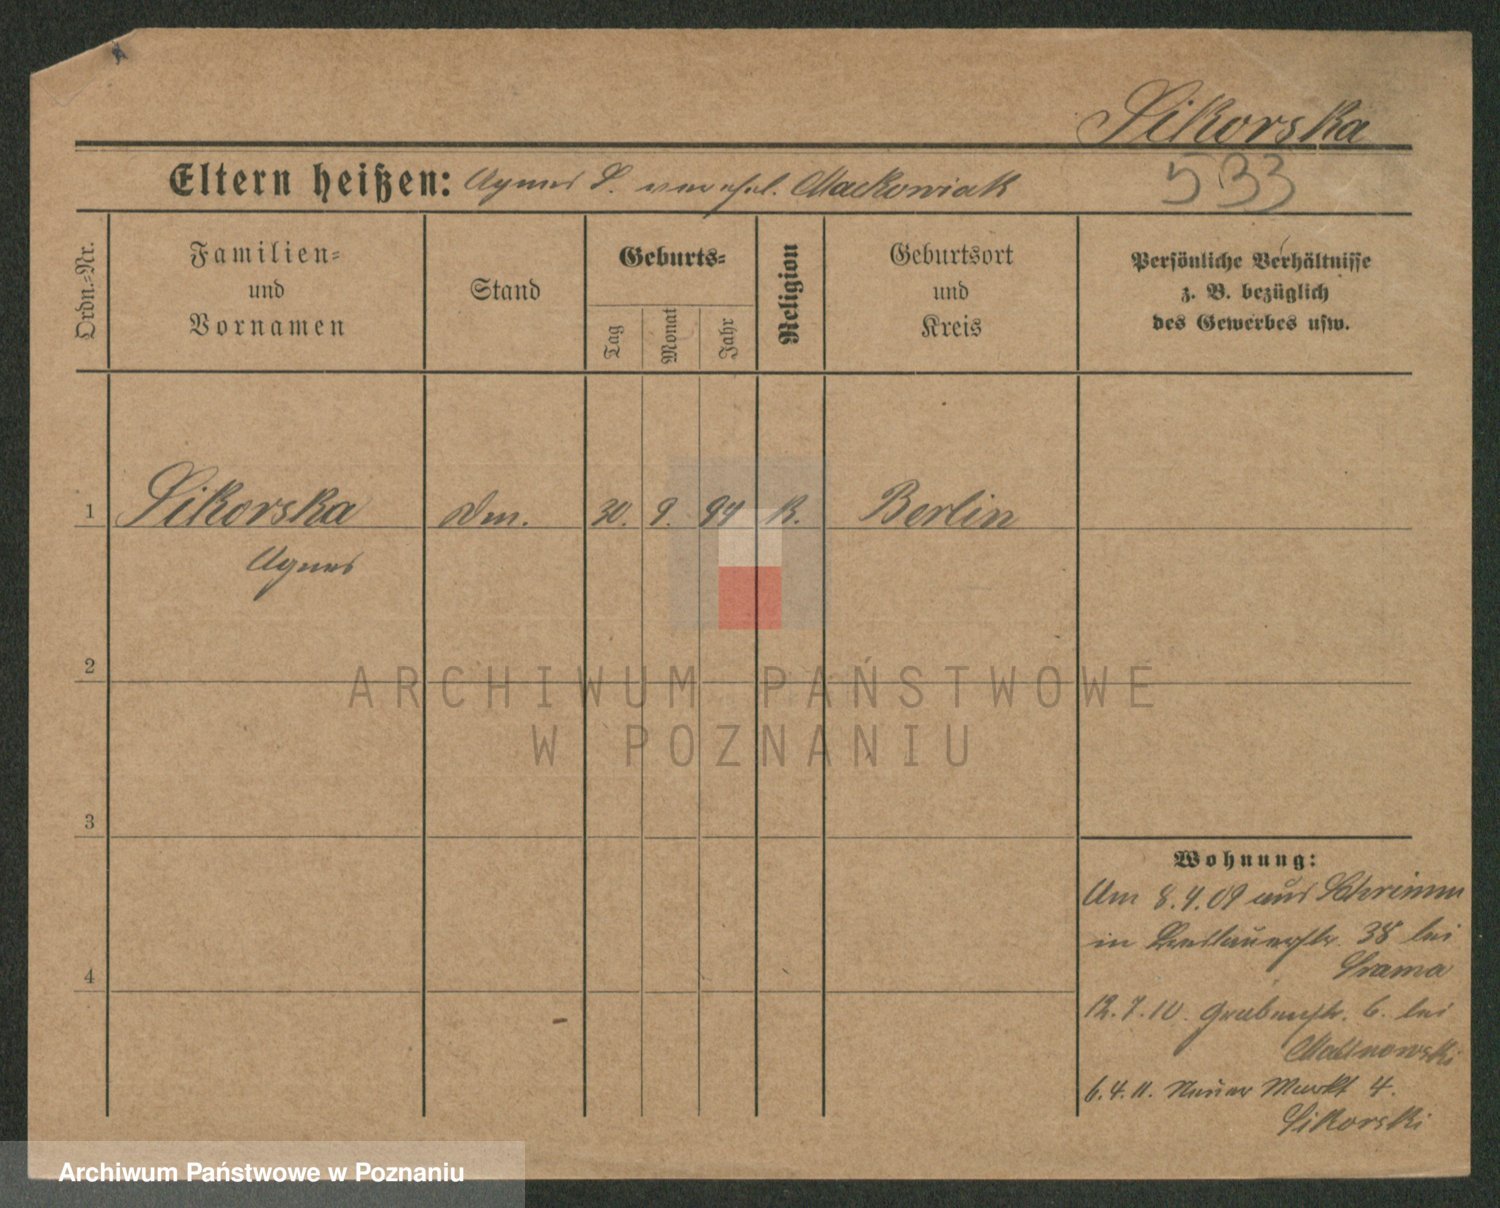 Sikorska
533
Eltern heißen: Agnes S. verehel. Maćkowiak
Ordn.-Nr.
Familien-
und
Vornamen
Stand
Geburts-
Tag
Monat
Jahr
Religion
Geburtsort
und
Kreis
Persönliche Verhältnisse
z. B. bezüglich
des Gewerbes usw.
1 Sikorska 30. 9. 94 K. Berlin
Agnes
2
ARCHIWUM PAŃSTWOWE
W POZNANIU
3
Wohnung:
Am 8.4.09 aus Schrimm
in Breslauerstr. 38 bei
4
12.7.10. Grabenstr. 6. bei
Malinowski
6.4.11. Neuer Markt 4.
Sikorski
Archiwum Państwowe w Poznaniu